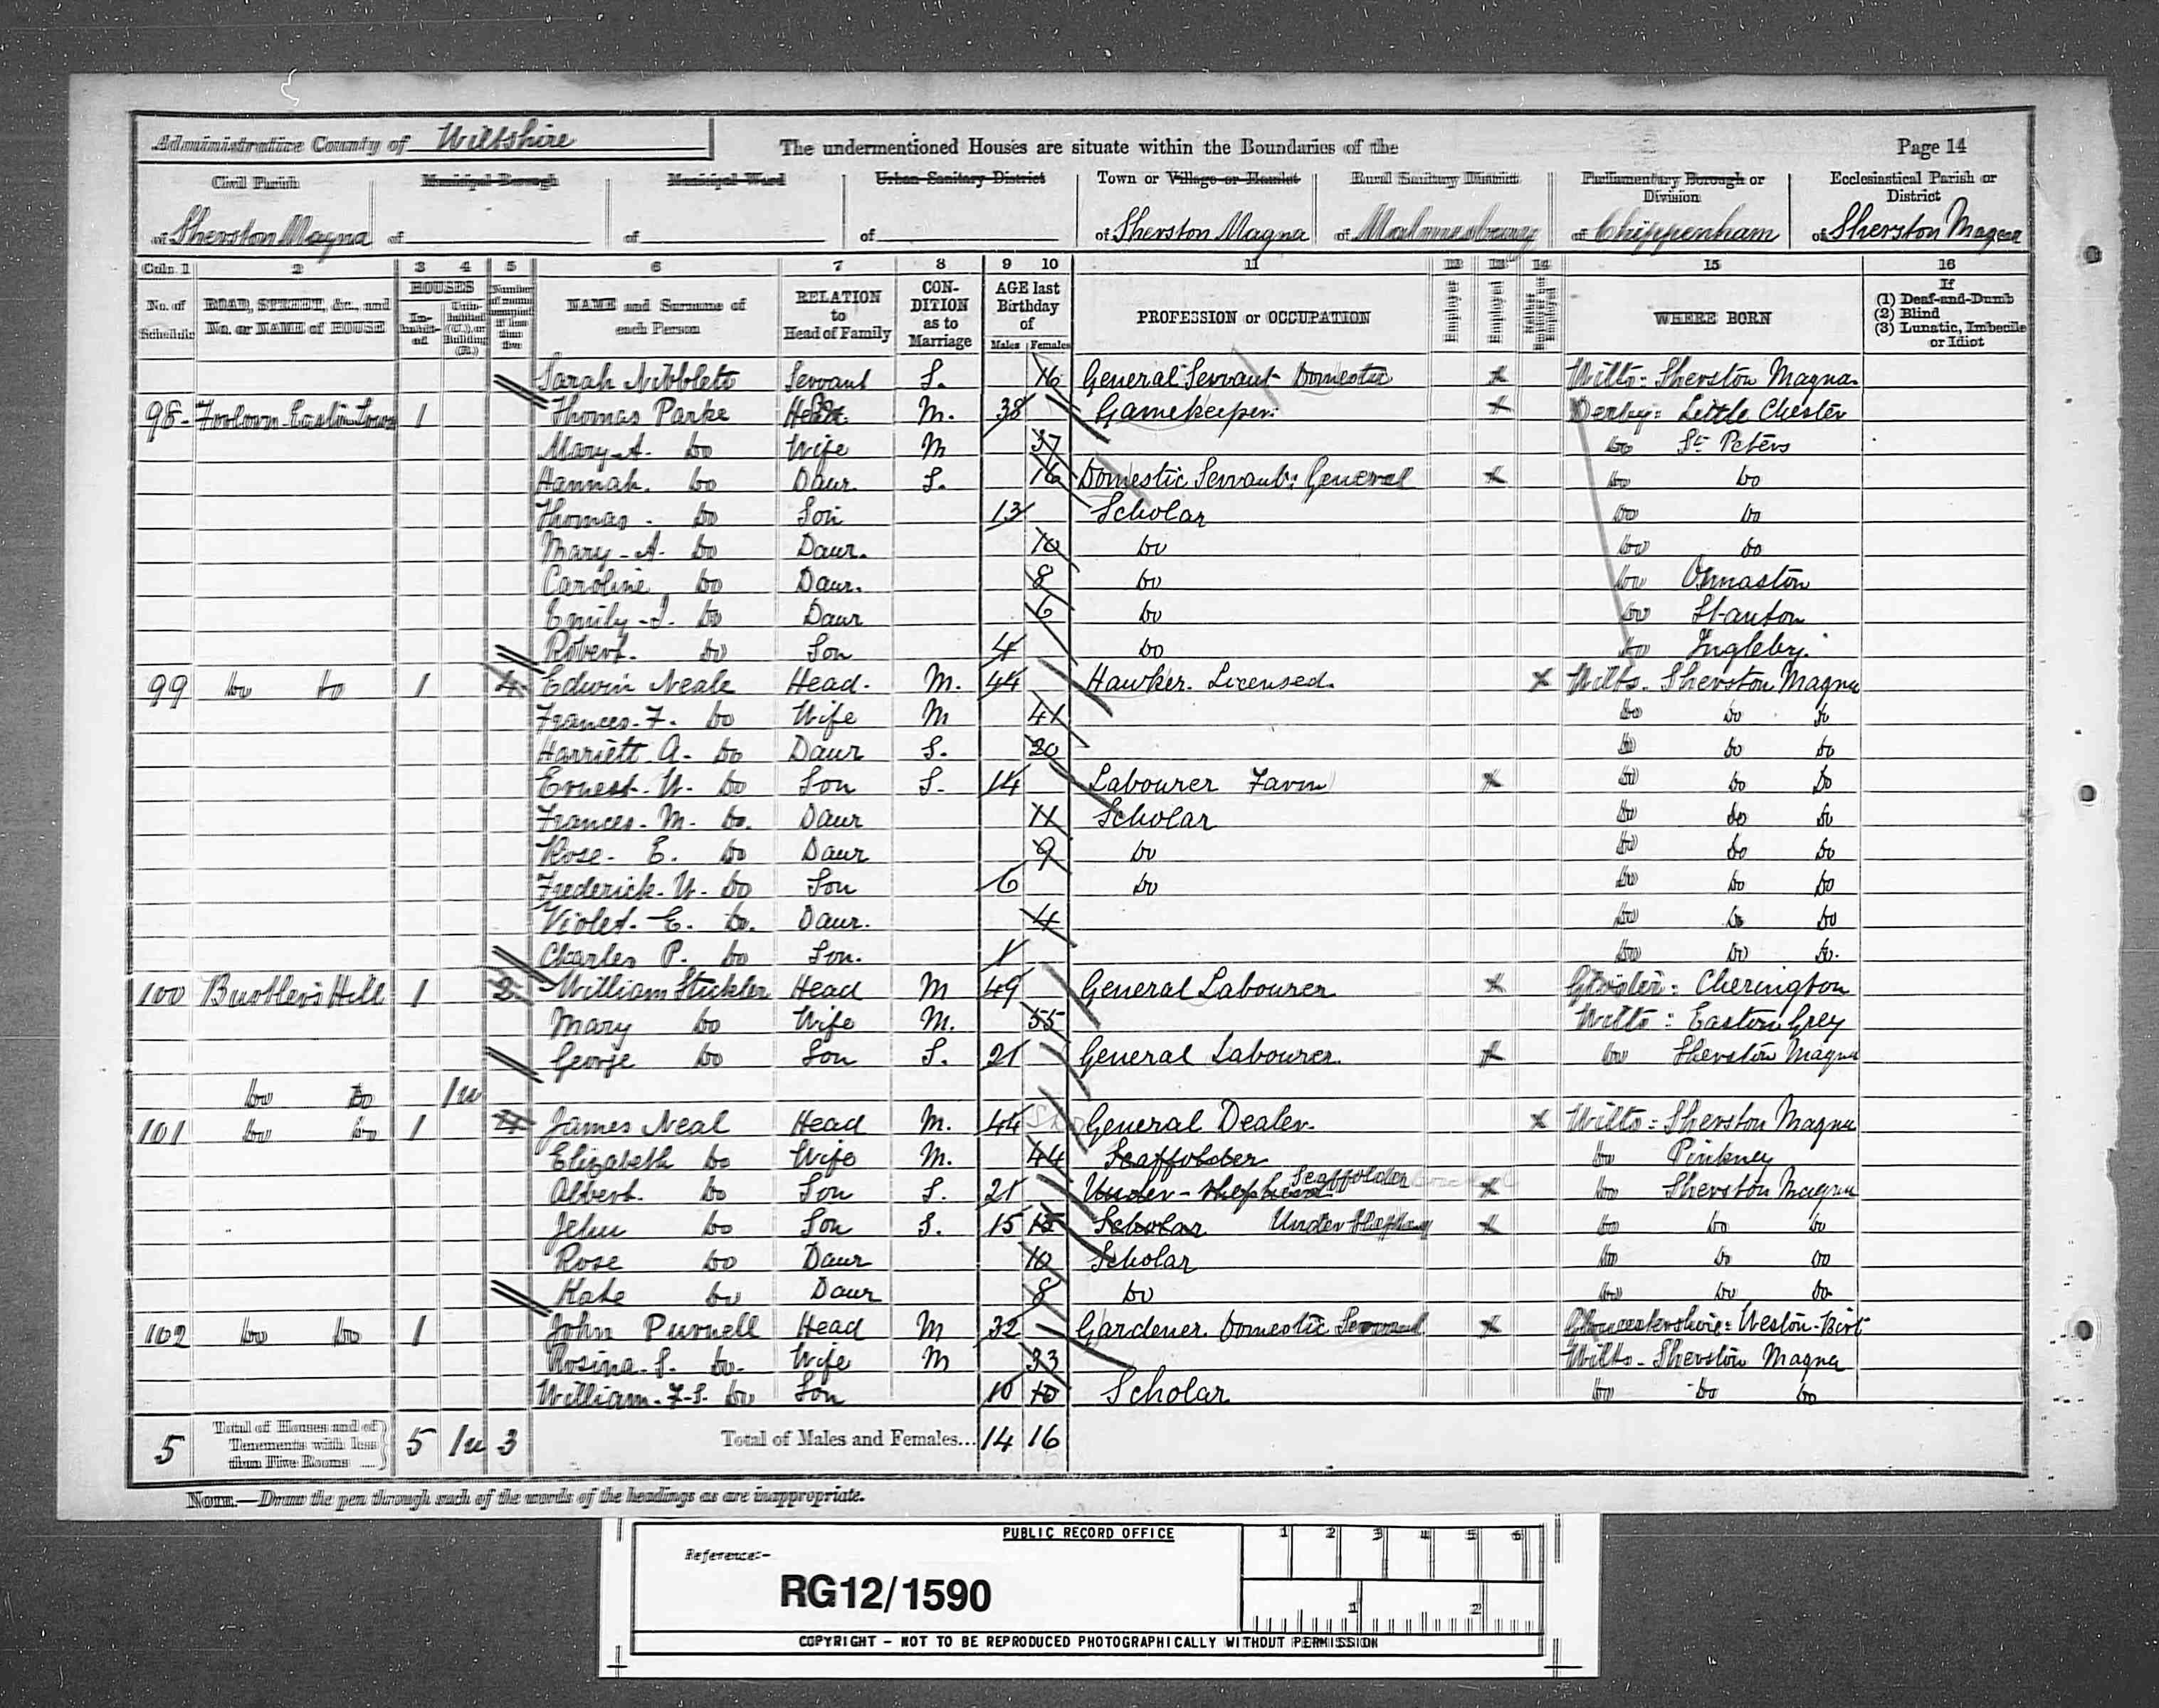 Administrative County of Wiltshire
The undermentioned Houses are situate within the Boundaries of the
Page 14
Civil Parish of Sherston Magna
Municipal Borough of
Municipal Ward of
Urban Sanitary District of
Town or Village or Hamlet of Sherston Magna
Rural Sanitary District of Malmesbury
Parliamentary Borough or Division of Chippenham
Ecclesiastical Parish or District of Sherston Magna
Coln 1 2 3 4 5 6 7 8 9 10 11 12 13 14 15 16
No. of Schedule
ROAD, STREET, &c., and No. or NAME of HOUSE
HOUSES
Inhabited
Uninhabited (U.), or Building (B.)
Number of rooms occupied if less than five
NAME and Surname of each Person
RELATION to Head of Family
CONDITION as to Marriage
AGE last Birthday of
Males Females
PROFESSION or OCCUPATION
Employer
Employed
Neither Employer nor Employed
WHERE BORN
If
(1) Deaf-and-Dumb
(2) Blind
(3) Lunatic, Imbecile or Idiot
Sarah Nibblett Servant S. 16 General Servant Domestic X Wilts: Sherston Magna.
98 Easton Town 1 Thomas Parke Head M. 38 Gamekeeper. X Derby: Little Chester
Mary A. do Wife M 37 do St Peters
Hannah. do Daur. S. 16 Domestic Servant: General X do do
Thomas. do Son 13 Scholar do do
Mary-A- do Daur. 10 do do do
Caroline do Daur. 8 do do Osmaston
Emily-J. do Daur 6 do do Stanton
Robert. do Son 4 do do Ingleby.
99 do do 1 4 Edwin Neale Head. M. 44 Hawker. Licensed. X Wilts. Sherston Magna
Frances. F. do Wife M 41 do do do
Harriett. A. do Daur S. 20 do do do
Ernest. W. do Son S. 14 Labourer Farm X do do do
Frances. M. do. Daur 11 Scholar do do do
Rose. E. do Daur 9 do do do do
Frederick. W. do Son 6 do do do do
Violet. E. do. Daur. 4 do do do
Charles P. do Son. 1 do do do.
100 Bustlers Hill 1 2 William Stickler Head M 49 General Labourer X Gloster: Cherington
Mary do Wife M. 55 Wilts: Easton Grey
George do Son S. 21 General Labourer. X do Sherston Magna
do do 1u
101 do do 1 4 James Neal Head M. 44 General Dealer. X Wilts: Sherston Magna
Elizabeth do Wife M. 44 Scaffolder do Pinkney
Albert. do Son S. 21 Under-shepherd Scaffolder X do Sherston Magna
Jehu do Son S. 15 15 Scholar Under Shepherd X do do do
Rose do Daur 10 Scholar do do do
Kate do Daur 8 do do do do
102 do do 1 John Purnell Head M 32 Gardener. Domestic Servant X Gloucestershire: Weston-Birt
Rosina. S. do. Wife M 33 Wilts. Sherston Magna
William. F. S. do Son 10 10 Scholar do do do
5 Total of Houses and of Tenements with less than Five Rooms 5 1u 3 Total of Males and Females... 14 16
NOTE.—Draw the pen through such of the words of the headings as are inappropriate.
PUBLIC RECORD OFFICE
1 2 3 4 5 6
Reference:-
RG12/1590
1 2
COPYRIGHT - NOT TO BE REPRODUCED PHOTOGRAPHICALLY WITHOUT PERMISSION